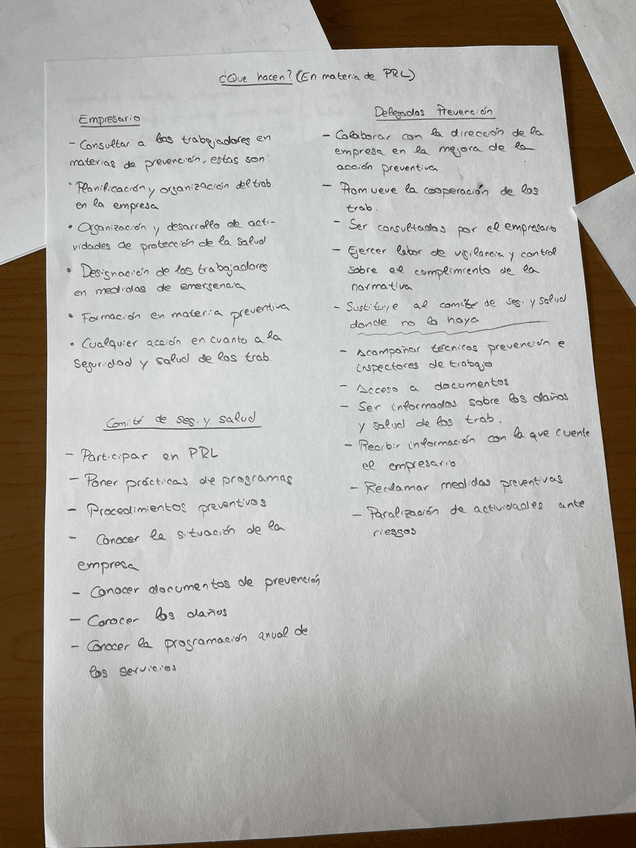 ¿Que hacen? (En materia de PRL)
Empresario
- Consultar a los trabajadores en
materias de prevención, estas son:
• Planificación y organización del trab.
en la empresa
• Organización y desarrollo de acti-
vidades de protección de la salud
• Designación de los trabajadores
en medidas de emergencia
• Formación en materia preventiva
• Cualquier acción en cuanto a la
seguridad y salud de los trab.
Comité de seg. y salud
- Participar en PRL
- Poner prácticas de programas
- Procedimientos preventivos
- Conocer la situación de la
empresa
- Conocer documentos de prevención
- Conocer los daños
- Conocer la programación anual de
los servicios
Delegados Prevención
- Colaborar con la dirección de la
empresa en la mejora de la
acción preventiva
- Promueve la cooperación de los
trab.
- Ser consultados por el empresario
- Ejercer labor de vigilancia y control
sobre el cumplimiento de la
normativa
- Sustituye al comité de seg. y salud
donde no lo haya
- Acompañar técnicos prevención e
inspectores de trabajo
- Acceso a documentos
- Ser informados sobre los daños
y salud de los trab.
- Recibir información con la que cuente
el empresario
- Reclamar medidas preventivas
- Paralización de actividades ante
riesgos